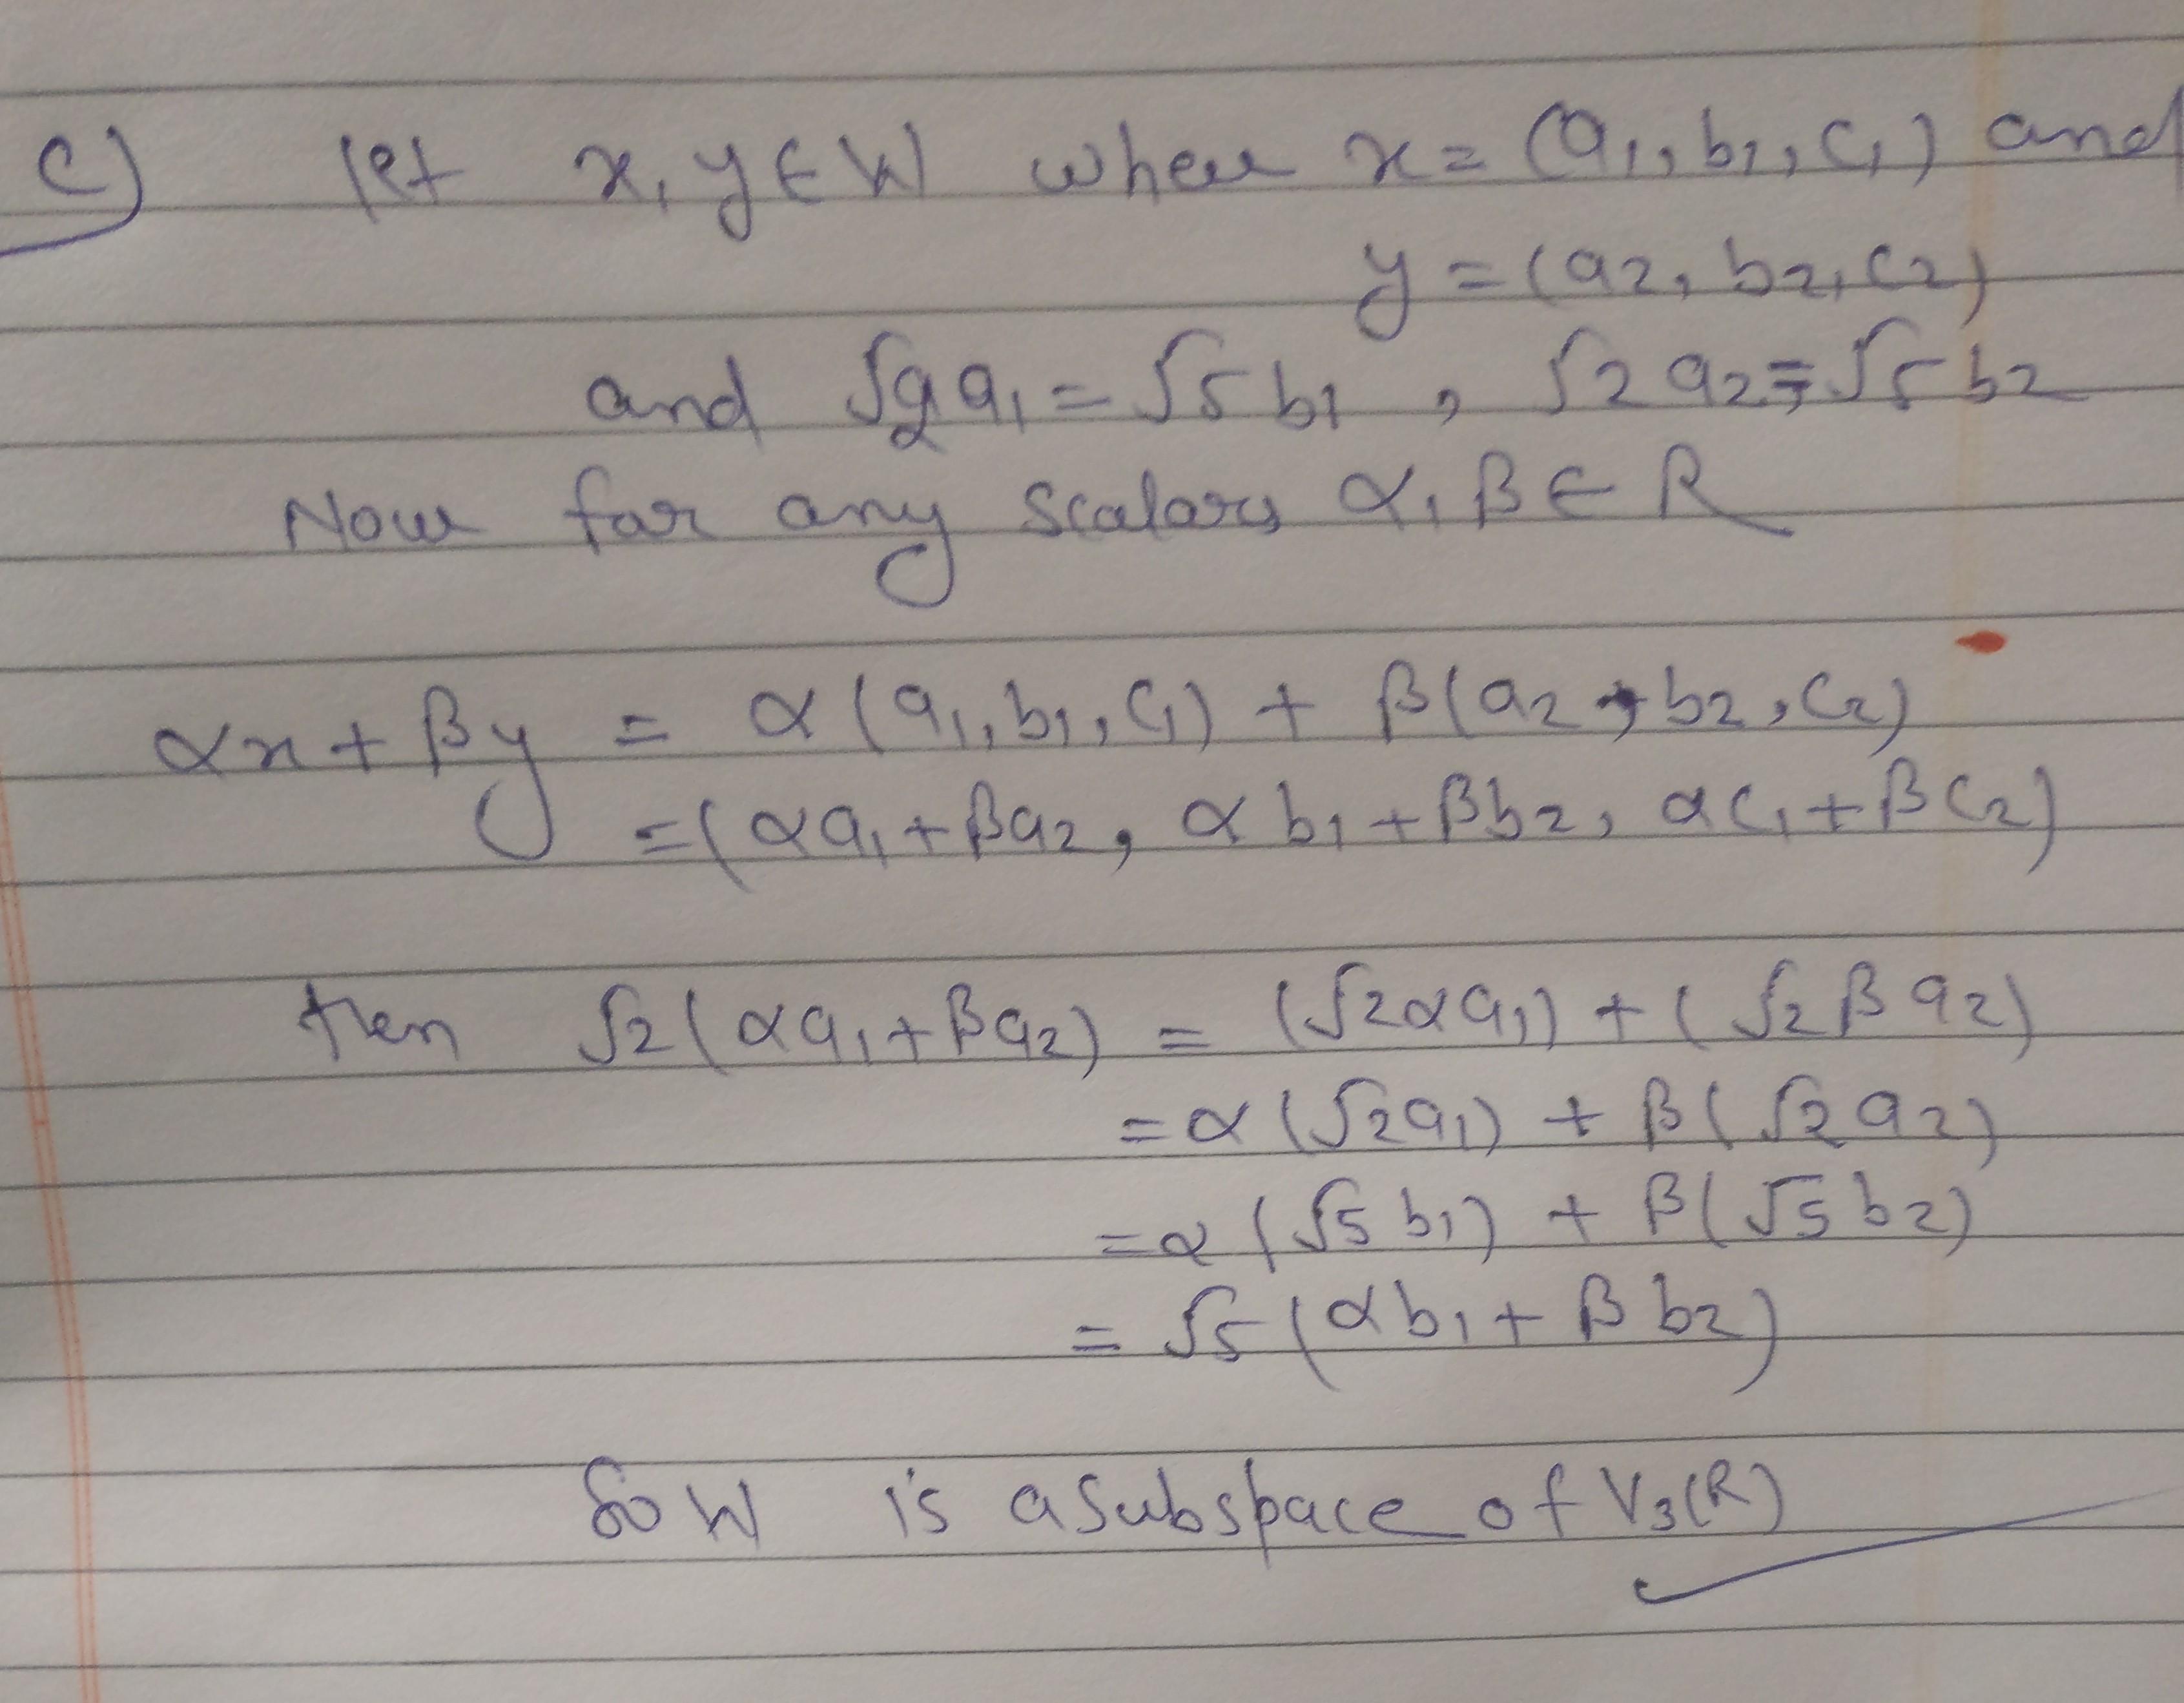 c) let x, y ∈ W where x = (a₁, b₁, c₁) and
y = (a₂, b₂, c₂)
and √2 a₁ = √5 b₁ , √2 a₂ = √5 b₂
Now for any scalars α, β ∈ R
αx + βy = α(a₁, b₁, c₁) + β(a₂, b₂, c₂)
= (αa₁ + βa₂, αb₁ + βb₂, αc₁ + βc₂)
then √2(αa₁ + βa₂) = (√2αa₁) + (√2βa₂)
= α(√2a₁) + β(√2a₂)
= α(√5b₁) + β(√5b₂)
= √5(αb₁ + βb₂)
So W is a subspace of V₃(R)